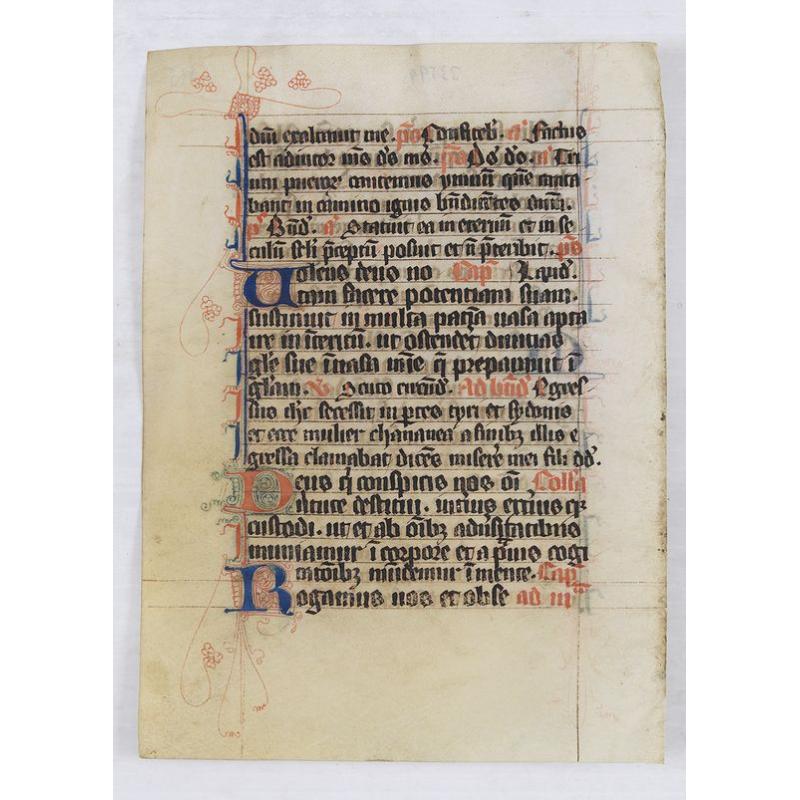 dn̄i exaltauit me. p̄s Confiteb'. a' Factus
est adiutor m̄s d̄s m̄s. p̄s D̄s d̄s. a' Tri
um pueror cantemus ymnū quē canta
bant in camino ignis bn̄dicētes dn̄m.
p̄s Bn̄d'. a' Statuit ea in eternū et in se
culū sc̄li p̄ceptū posuit et n̄ p̄teribit. p̄s
Uolens deus no Cap̄
tam facere potentiam suam.
sustinuit in multa paciā uasa apta
ire in īteritū. ut ostendet diuicias
gl̄e sue ī uasa mīe q̄ preparauit ī
gl̄am. V̄ Scuto circūd'. Ad bn̄d' Egres
sus ih̄c secessit in ꝑtes tyri et sydonis
et ecce mulier chananea a finibꝫ illis e
gressa clamabat dicēs miserē mei fili dd'.
Deus q̄ conspicis nos oī Coll̄a
uirtute destitui. intius extiusqꝫ
custodi. ut et ab oībꝫ aduersitatibus
muniamur ī corpore et a prauis cogi
tatoībꝫ mūdemur ī mente. Cap̄
Rogamus uos et obse ad iii